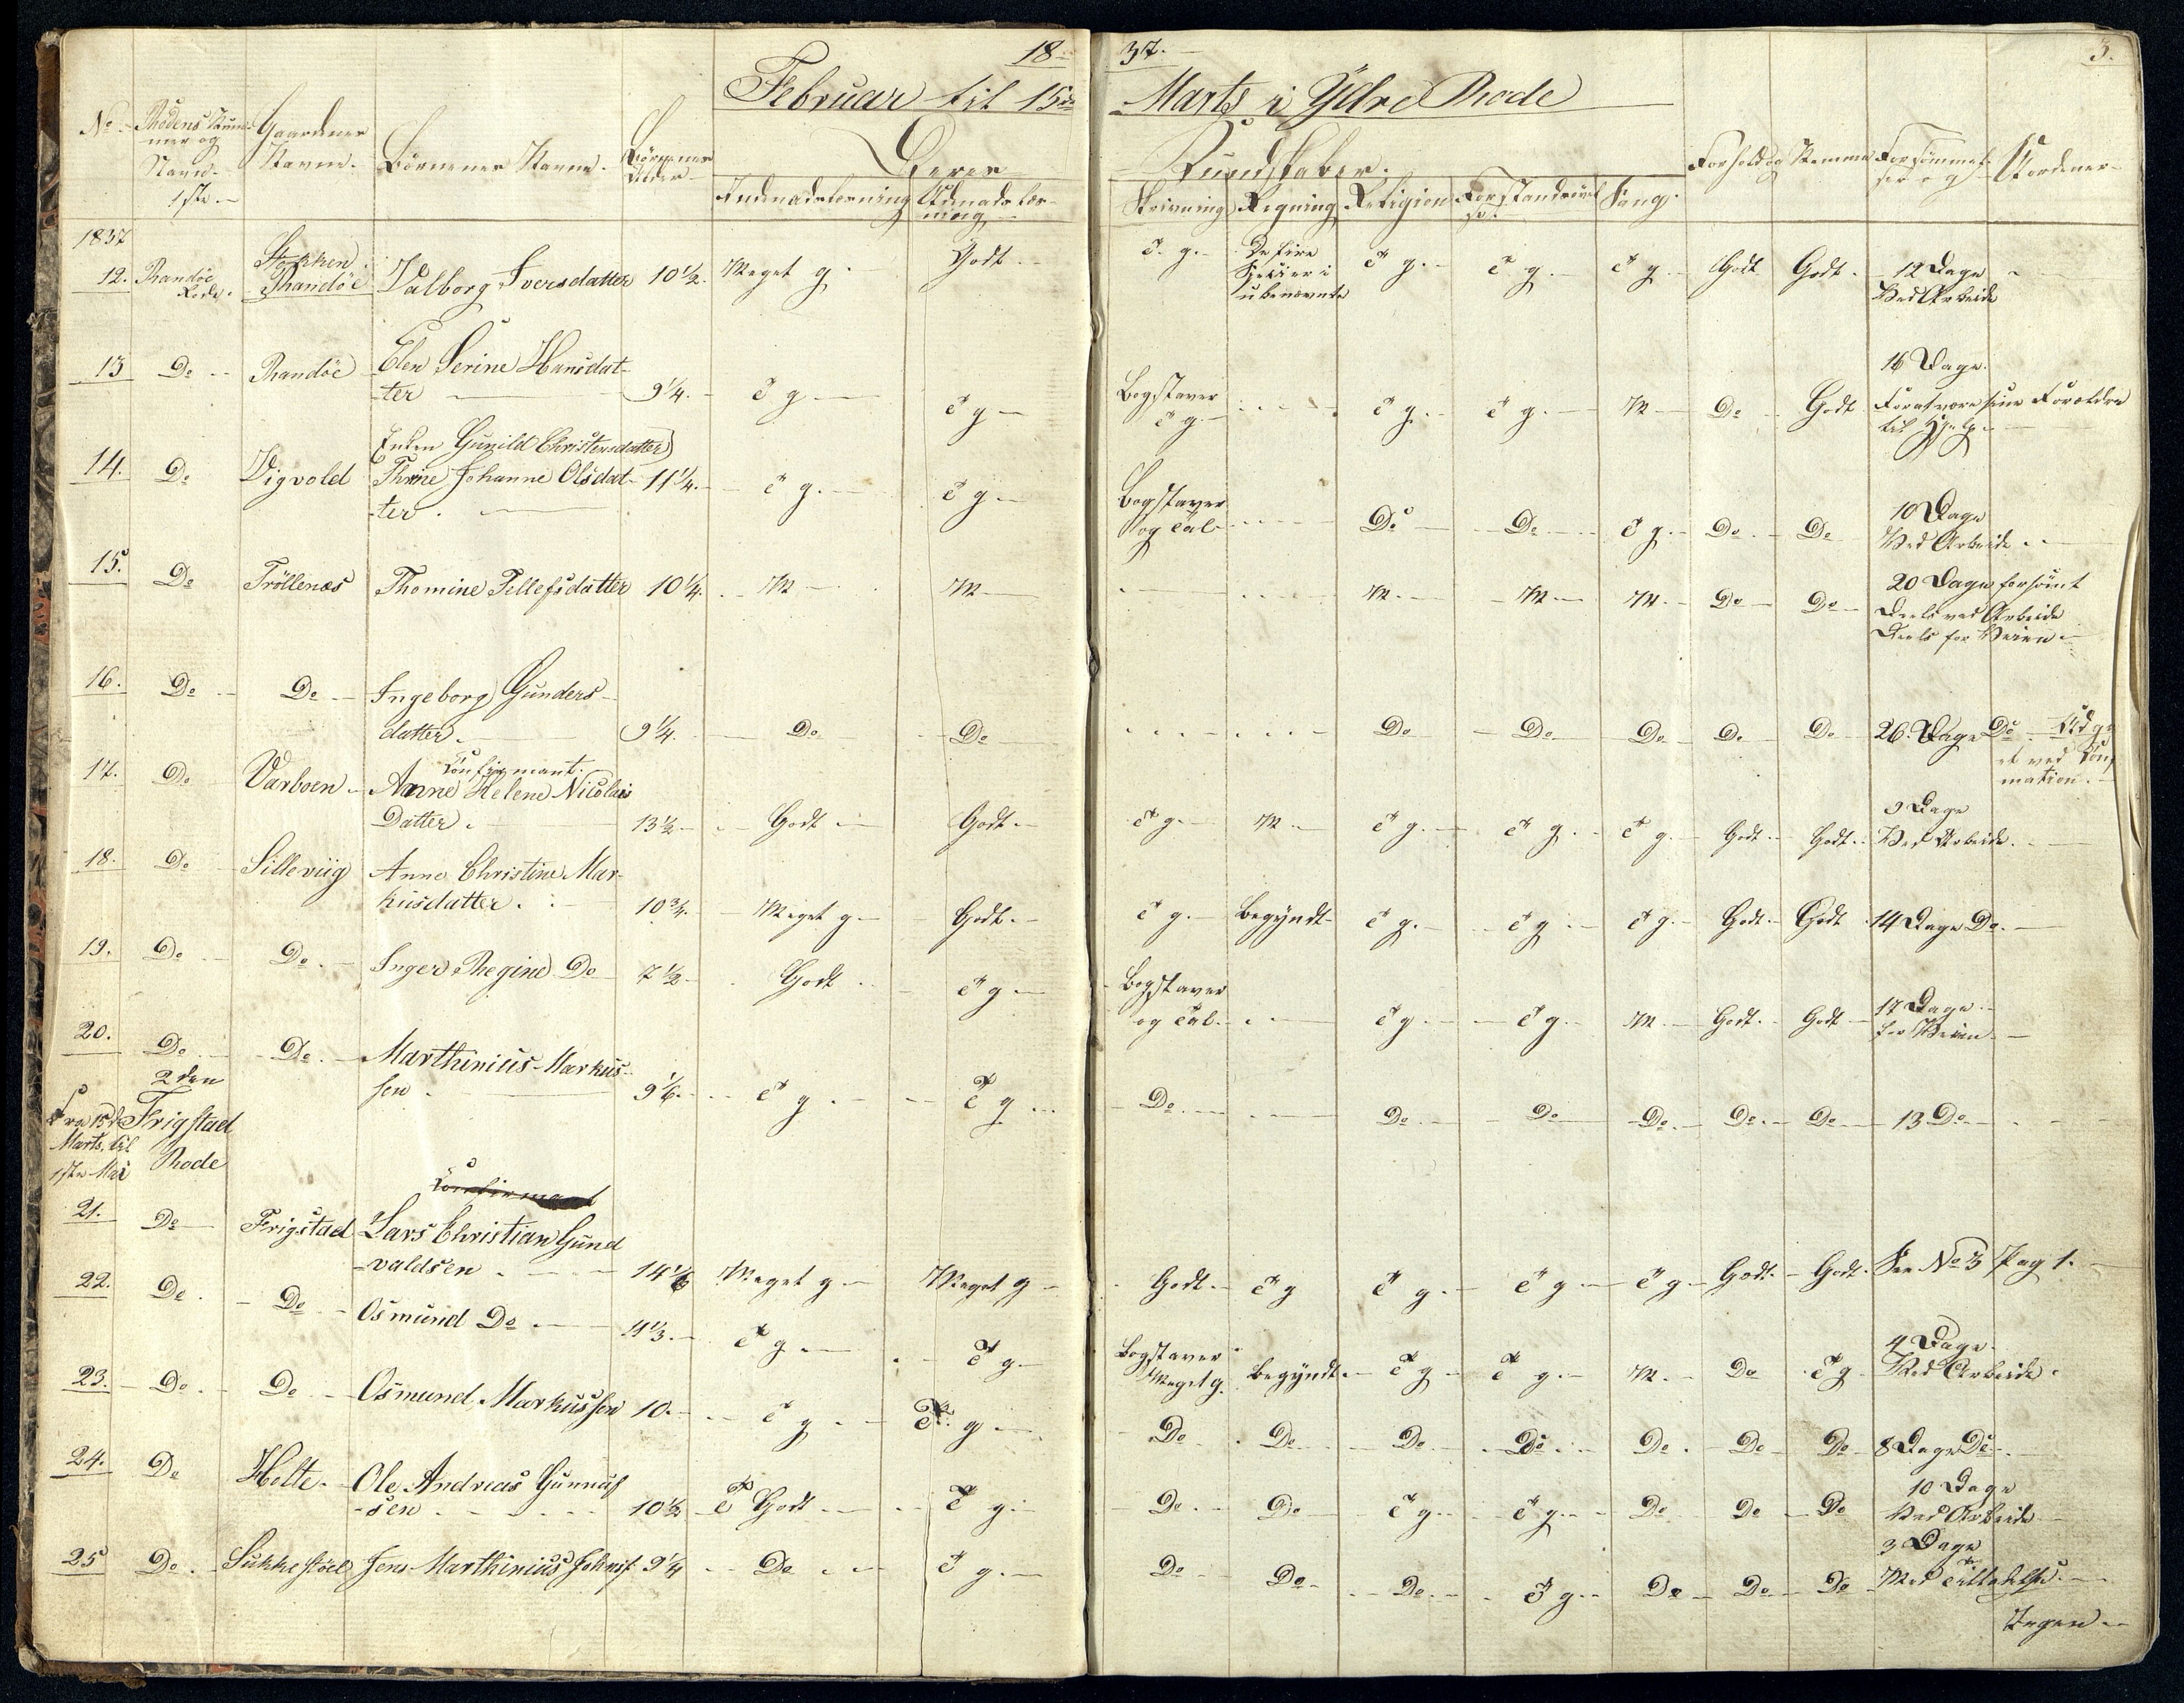 18 37. 3.
Februar til 15de Marts i Ydre Rode
No Rodens Num-
mer og
Navn.
1ste.
Gaardenes
Navne.
Børnenes Navne.
Børnenes
Alder.
Deres Kundskaber.
Indenadslæsning
Udenads læs-
ning
Skrivning Regning Religion Forstandsøvel
ser
Sang.
Forhold og Nemme
1837
12. Randøe
Rode. Stokken
Randöe Valborg Iversdatter 10 1/2. Meget g. Godt T. g. De fire
Spesier i
ubenævnte T g. T g. T g. Godt Godt. 12 Dage
Ved Arbeide
13 Do Randöe Elen Serine Hansdat-
ter 9 1/4. T g T g Bogstaver
T g. T g. T g. M Do Godt 16 Dage.
For at være sine Forældre
til Hjelp
14. Do Vigvold (Enken Gunild Christensdatter)
Thrine Johanne Olsdat-
ter. 11 1/4. T g. T g Bogstaver
og Tal Do Do T g. Do. Do 10 Dage
Ved Arbeide
15. Do Tröllenæs Thomine Tellefsdatter 10 1/4. M M M. M. M. Do Do 20 Dage forsömt
Deels ved Arbeide
Deels for Veien
16. Do Do Ingeborg Gunders-
datter. 9 1/4. Do Do Do Do Do Do Do 26. Dage Do
17. Do Varboen Confirmant.
Anne Helene Nicolais
Datter. 13 1/2 Godt Godt. T g. M T g. T g. T g. Godt. Godt. 9 Dage
Ved Arbeide.
mation.
18. Do Silleviig Anne Christine Mar-
kusdatter. 10 3/4. Meget g. Godt. T g. Begyndt T g. T g. T g. Godt. Godt 14 Dage Do.
19. Do Do. Inger Regine Do 7 1/2 Godt T g. Bogstaver
og Tal. T g T g. M. Godt. Godt 17 Dage
for Veien.
20. Do Do. Marthinius Markus-
sen. 9 1/6. T g. T g Do. Do. Do Do. Do. Do 13 Do
Fra 15de
Marts til
1ste Mai
2den
Frigstad
Rode
Confirmant
21. Do Frigstad Lars Christian Gund
valdsen 14 1/6 Meget g. Meget g Godt. T g T g. T g T g Godt. Godt. See No 3 Pag 1.
22. Do. Do Osmund Do. 11 1/3. T g. T g Bogstaver
Meget g. Begyndt. T g T g. M. Do T g 4 Dage.
Ved Arbeide.
23. Do. Do Osmund Markussen 10. T g. T. g. Do Do Do. Do. Do. Do Do 8 Dage Do.
24. Do Holte. Ole Andreas Gunnuf
sen 10 1/2 T Godt T g. Do. Do T g. T g. Do Do Do 10 Dage
Ved Arbeide
25 Do. Sukkestöel Jens Marthinius Johnsf. 9 1/4 Do T g. Do Do Do. T g. Do Do Do 3 Dage
Med Tilladelse.
Ingen